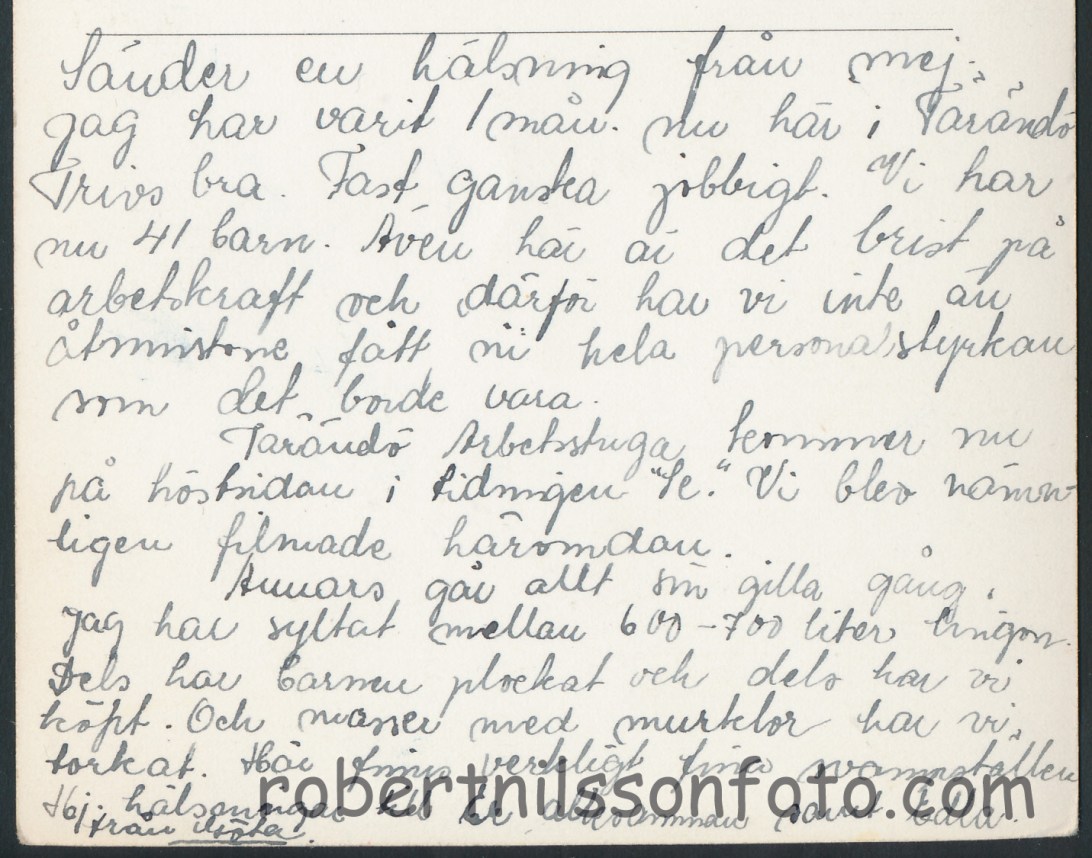 Sänder en hälsning från mej.
jag har varit 1 mån. nu här i Tärändö
Trivs bra. Fast ganska jobbigt. Vi har
nu 41 barn. Även här är det brist på
arbetskraft och därför har vi inte än
åtminstone fått hela personalstyrkan
som det borde vara.
Tärändö Arbetsstuga kommer nu
på höstsidan i tidningen "Se." Vi blev nämn-
ligen filmade häromdan.
Annars går allt sin gilla gång.
Jag har syltat mellan 600-700 liter lingon.
Dels har barnen plockat och dels har vi
köpt. Och masser med murklor har vi
torkat. Här finns verkligt fina svampställen
Hej. hälsningar till Er allesamman samt
från
robertnilssonfoto.com